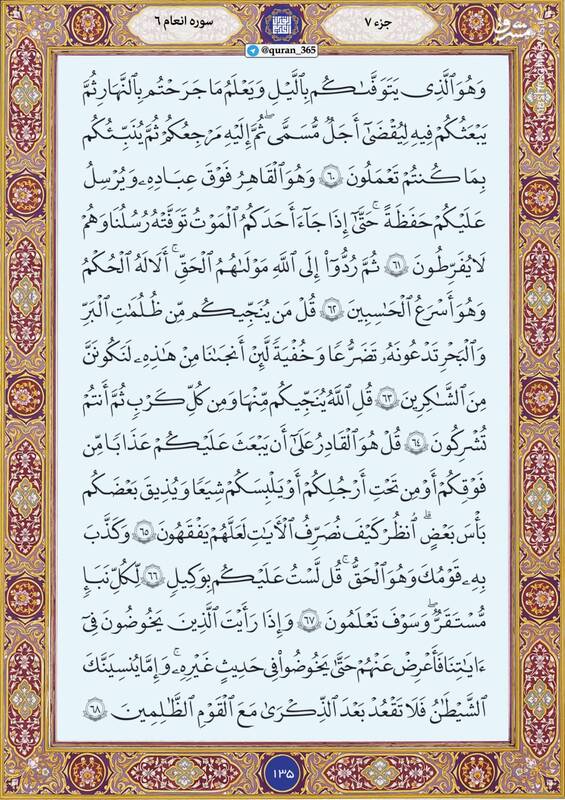 جزء ۷
سوره انعام ۶
@quran_365
مشرق
وَهُوَ ٱلَّذِي يَتَوَفَّىٰكُم بِٱلَّيۡلِ وَيَعۡلَمُ مَا جَرَحۡتُم بِٱلنَّهَارِ ثُمَّ
يَبۡعَثُكُمۡ فِيهِ لِيُقۡضَىٰٓ أَجَلٞ مُّسَمّٗىۖ ثُمَّ إِلَيۡهِ مَرۡجِعُكُمۡ ثُمَّ يُنَبِّئُكُم
بِمَا كُنتُمۡ تَعۡمَلُونَ ٦٠ وَهُوَ ٱلۡقَاهِرُ فَوۡقَ عِبَادِهِۦۖ وَيُرۡسِلُ
عَلَيۡكُمۡ حَفَظَةً حَتَّىٰٓ إِذَا جَآءَ أَحَدَكُمُ ٱلۡمَوۡتُ تَوَفَّتۡهُ رُسُلُنَا وَهُمۡ
لَا يُفَرِّطُونَ ٦١ ثُمَّ رُدُّوٓاْ إِلَى ٱللَّهِ مَوۡلَىٰهُمُ ٱلۡحَقِّۚ أَلَا لَهُ ٱلۡحُكۡمُ
وَهُوَ أَسۡرَعُ ٱلۡحَٰسِبِينَ ٦٢ قُلۡ مَن يُنَجِّيكُم مِّن ظُلُمَٰتِ ٱلۡبَرِّ
وَٱلۡبَحۡرِ تَدۡعُونَهُۥ تَضَرُّعٗا وَخُفۡيَةٗ لَّئِنۡ أَنجَىٰنَا مِنۡ هَٰذِهِۦ لَنَكُونَنَّ
مِنَ ٱلشَّٰكِرِينَ ٦٣ قُلِ ٱللَّهُ يُنَجِّيكُم مِّنۡهَا وَمِن كُلِّ كَرۡبٖ ثُمَّ أَنتُمۡ
تُشۡرِكُونَ ٦٤ قُلۡ هُوَ ٱلۡقَادِرُ عَلَىٰٓ أَن يَبۡعَثَ عَلَيۡكُمۡ عَذَابٗا مِّن
فَوۡقِكُمۡ أَوۡ مِن تَحۡتِ أَرۡجُلِكُمۡ أَوۡ يَلۡبِسَكُمۡ شِيَعٗا وَيُذِيقَ بَعۡضَكُم
بَأۡسَ بَعۡضٍۗ ٱنظُرۡ كَيۡفَ نُصَرِّفُ ٱلۡأٓيَٰتِ لَعَلَّهُمۡ يَفۡقَهُونَ ٦٥ وَكَذَّبَ
بِهِۦ قَوۡمُكَ وَهُوَ ٱلۡحَقُّۚ قُل لَّسۡتُ عَلَيۡكُم بِوَكِيلٖ ٦٦ لِّكُلِّ نَبَإٖ
مُّسۡتَقَرّٞۚ وَسَوۡفَ تَعۡلَمُونَ ٦٧ وَإِذَا رَأَيۡتَ ٱلَّذِينَ يَخُوضُونَ فِيٓ
ءَايَٰتِنَا فَأَعۡرِضۡ عَنۡهُمۡ حَتَّىٰ يَخُوضُواْ فِي حَدِيثٍ غَيۡرِهِۦۚ وَإِمَّا يُنسِيَنَّكَ
ٱلشَّيۡطَٰنُ فَلَا تَقۡعُدۡ بَعۡدَ ٱلذِّكۡرَىٰ مَعَ ٱلۡقَوۡمِ ٱلظَّٰلِمِينَ ٦٨
۱۳۵